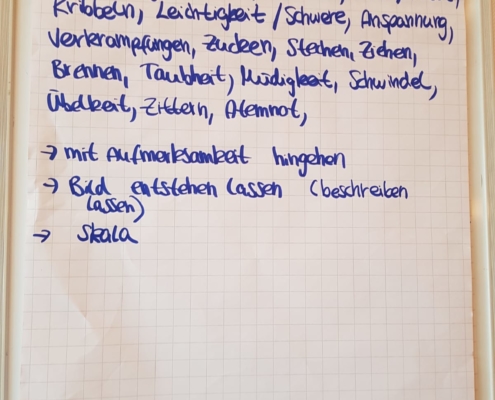 Kribbeln, Leichtigkeit / Schwere, Anspannung,
Verkrampfungen, Zucken, Stechen, Ziehen,
Brennen, Taubheit, Müdigkeit, Schwindel,
Übelkeit, Zittern, Atemnot,
→ mit Aufmerksamkeit hingehen
→ Bild entstehen lassen (beschreiben
lassen)
→ Skala